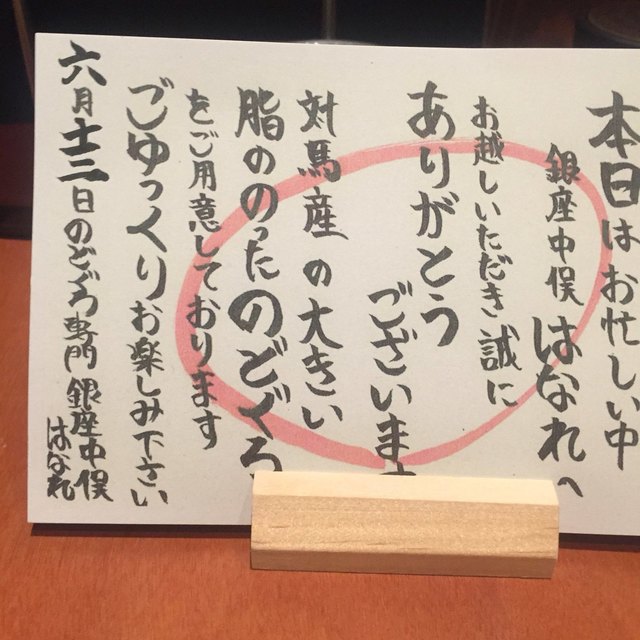 本日はお忙しい中
銀座中俣はなれへ
お越しいただき誠に
ありがとう
ございます
対馬産の大きい
脂ののったのどぐろ
をご用意しております
ごゆっくりお楽しみ下さい
六月十三日のどぐろ専門銀座中俣
はなれ